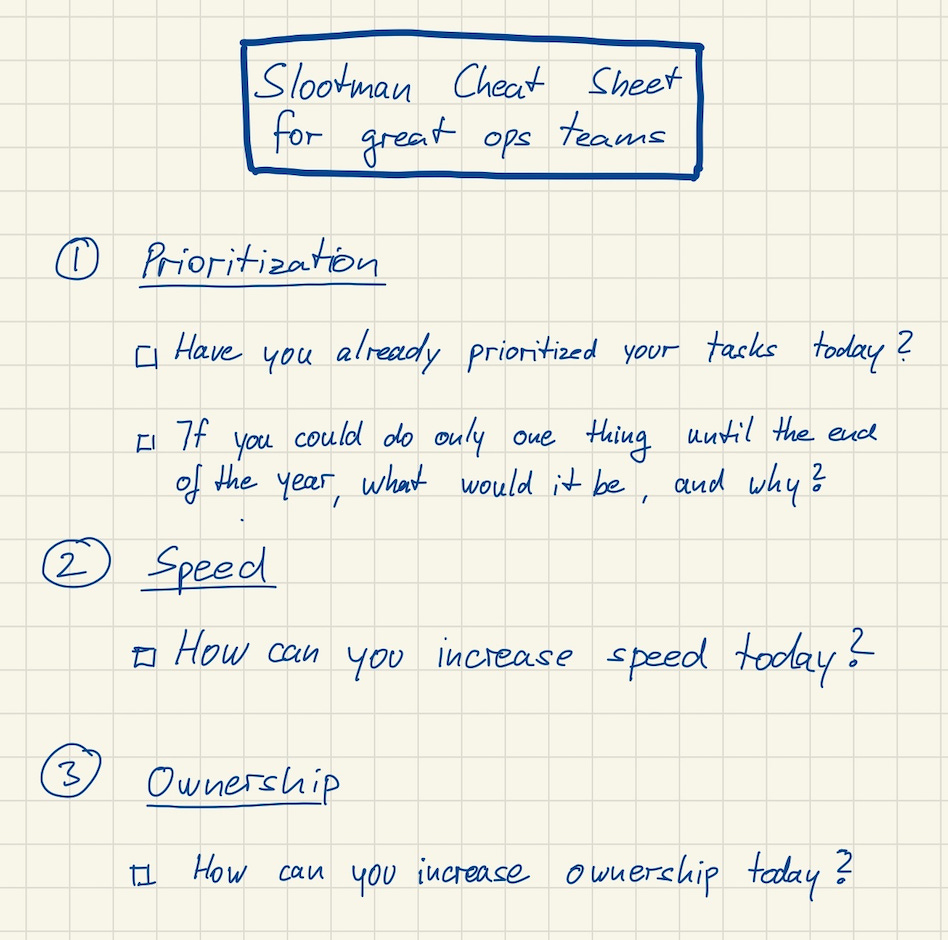 Slootman Cheat Sheet
for great ops teams
① Prioritization
☐ Have you already prioritized your tasks today?
☐ If you could do only one thing until the end
of the year, what would it be, and why?
② Speed
☐ How can you increase speed today?
③ Ownership
☐ How can you increase ownership today?